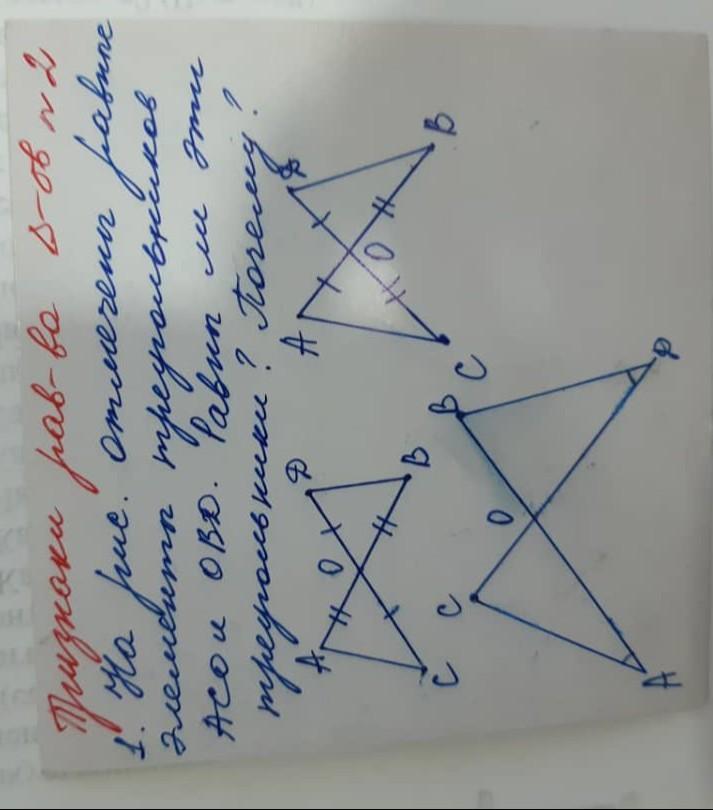 Признаки рав-ва Δ-ов №2
1. На рис. отмечены равные
элементы треугольников
АСО и ОВD. Равны ли эти
треугольники? Почему?
A D O C B
A D O C B
C O B A D